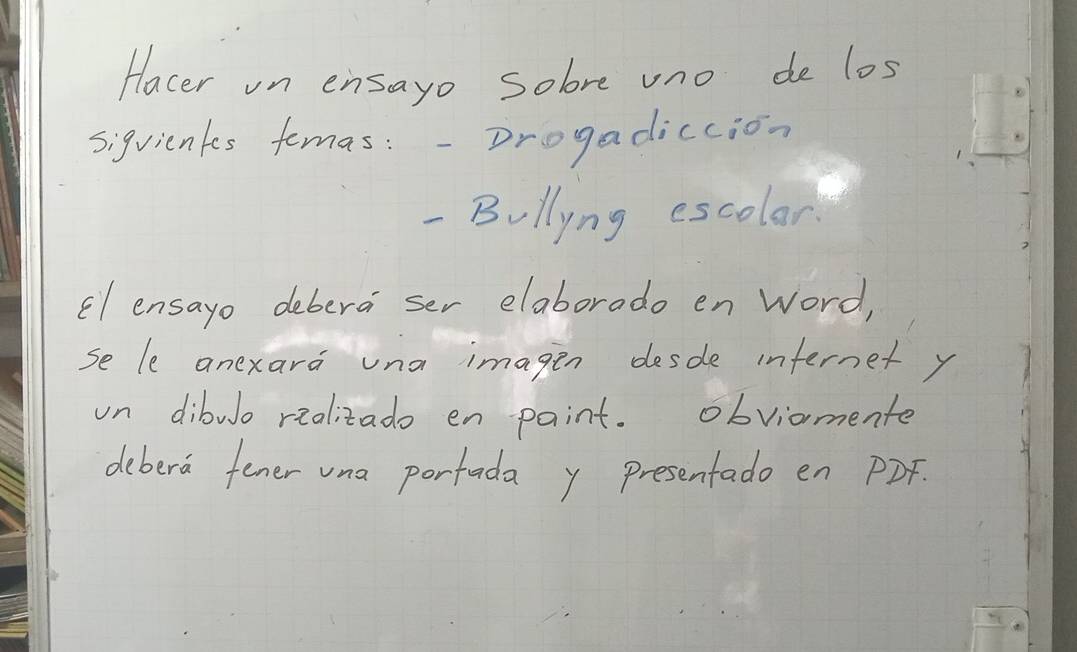 Hacer un ensayo sobre uno de los
siguientes temas: - Drogadicción
- Bullyng escolar.
El ensayo deberá ser elaborado en Word,
se le anexará una imagen desde internet y
un dibujo realizado en paint. Obviamente
deberá tener una portada y presentado en PDF.